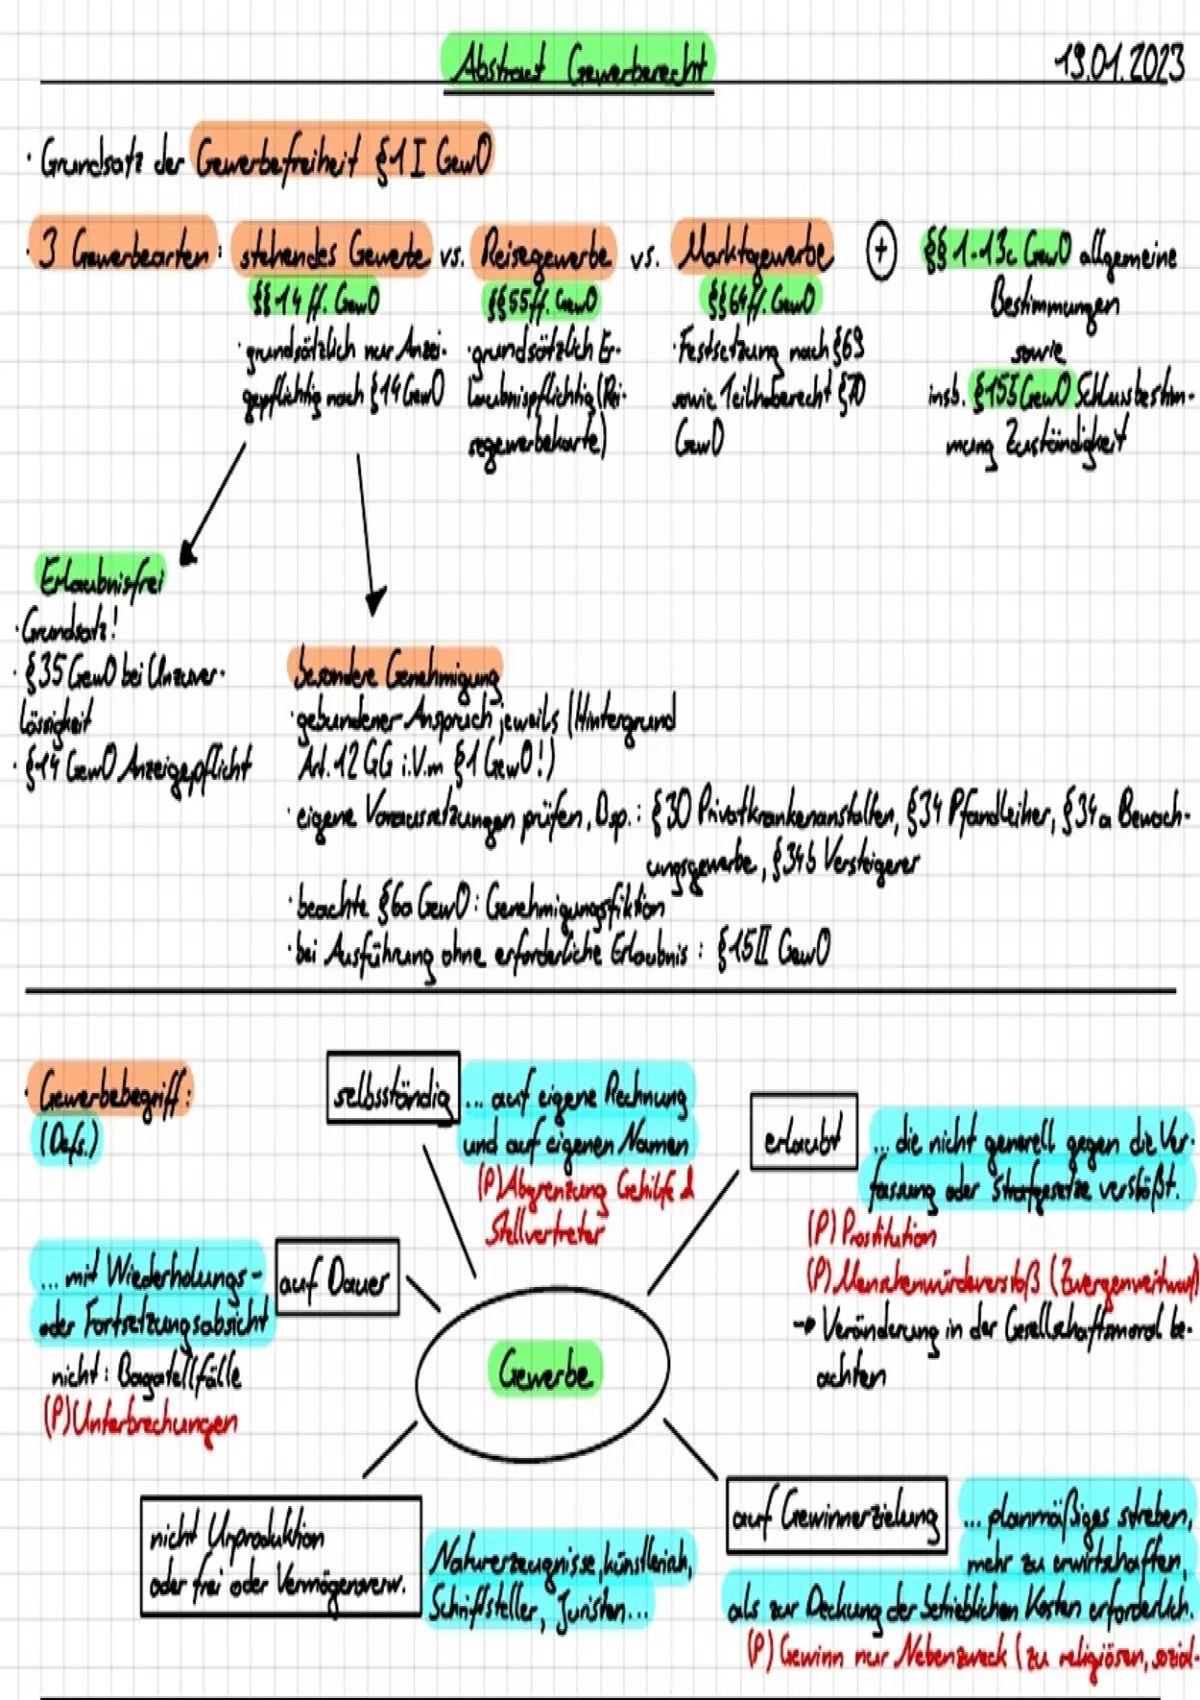 Abstract Gewerberecht
19.01.2023
· Grundsatz der Gewerbefreiheit §1 I GewO
· 3 Gewerbearten: stehendes Gewerbe vs. Reisegewerbe vs. Marktgewerbe + §§ 1-13c GewO allgemeine
Bestimmungen
sowie
insb. § 155 GewO Schlussbestim-
mung Zuständigkeit
§§ 14 ff. GewO
· grundsätzlich nur Anzei-
gepflichtig nach § 14 GewO
§§ 55 ff. GewO
· grundsätzlich Er-
laubnispflichtig (Rei-
segewerbekarte)
§§ 64 ff. GewO
· Festsetzung nach § 69
sowie Teilhaberecht § 70
GewO
Erlaubnisfrei
· Grundsatz!
· § 35 GewO bei Unzuver-
lässigkeit
· § 14 GewO Anzeigepflicht
besondere Genehmigung
· gebundener Anspruch jeweils (Hintergrund
Art. 12 GG i.V.m §1 GewO!)
· eigene Voraussetzungen prüfen, Bsp.: § 30 Privatkrankenanstalten, § 34 Pfandleiher, § 34a Bewach-
ungsgewerbe, § 34b Versteigerer
· beachte § 6a GewO: Genehmigungsfiktion
· bei Ausführung ohne erforderliche Erlaubnis: § 15 II GewO
· Gewerbebegriff:
(Defs.)
selbsständig
... auf eigene Rechnung
und auf eigenen Namen
(P) Abgrenzung Gehilfe &
Stellvertreter
erlaubt
... die nicht generell gegen die Ver-
fassung oder Strafgesetze verstößt.
(P) Prostitution
(P) Menschenwürdeverstoß (Zwergenweitwurf)
→ Veränderung in der Gesellschaftsmoral be-
achten
... mit Wiederholungs-
oder Fortsetzungsabsicht
nicht: Bagatellfälle
(P) Unterbrechungen
auf Dauer
Gewerbe
nicht Urproduktion
oder frei oder Vermögensverw.
Naturerzeugnisse, künstlerisch,
Schriftsteller, Juristen...
auf Gewinnerzielung
... planmäßiges streben,
mehr zu erwirtschaften,
als zur Deckung der betrieblichen Kosten erforderlich.
(P) Gewinn nur Nebenzweck (zu religiösen, sozial-